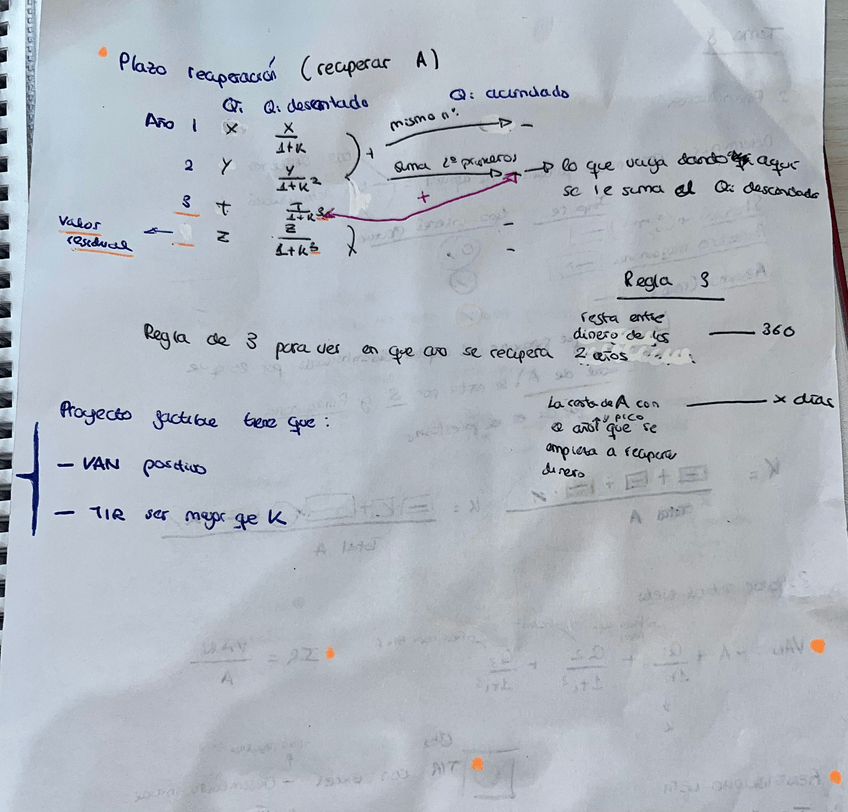 Plazo recuperación (recuperar A)
Qi Qi descontado Qi acumulado
Año 1 X X/1+K + mismo nº: -
2 Y Y/1+K² suma 2º primeros lo que vaya dando aqui
se le suma el Qi descontado
3 T T/1+K +
Valor residual Z Z/1+K³ -
-
Regla 3
resta entre
dinero de los
2 años 360
Regla de 3 para ver en que año se recupera
La costa de A con x días
y pico
año que se
empieza a recuperar
dinero
Proyecto factible tiene que:
- VAN positivo
- TIR ser mayor que K